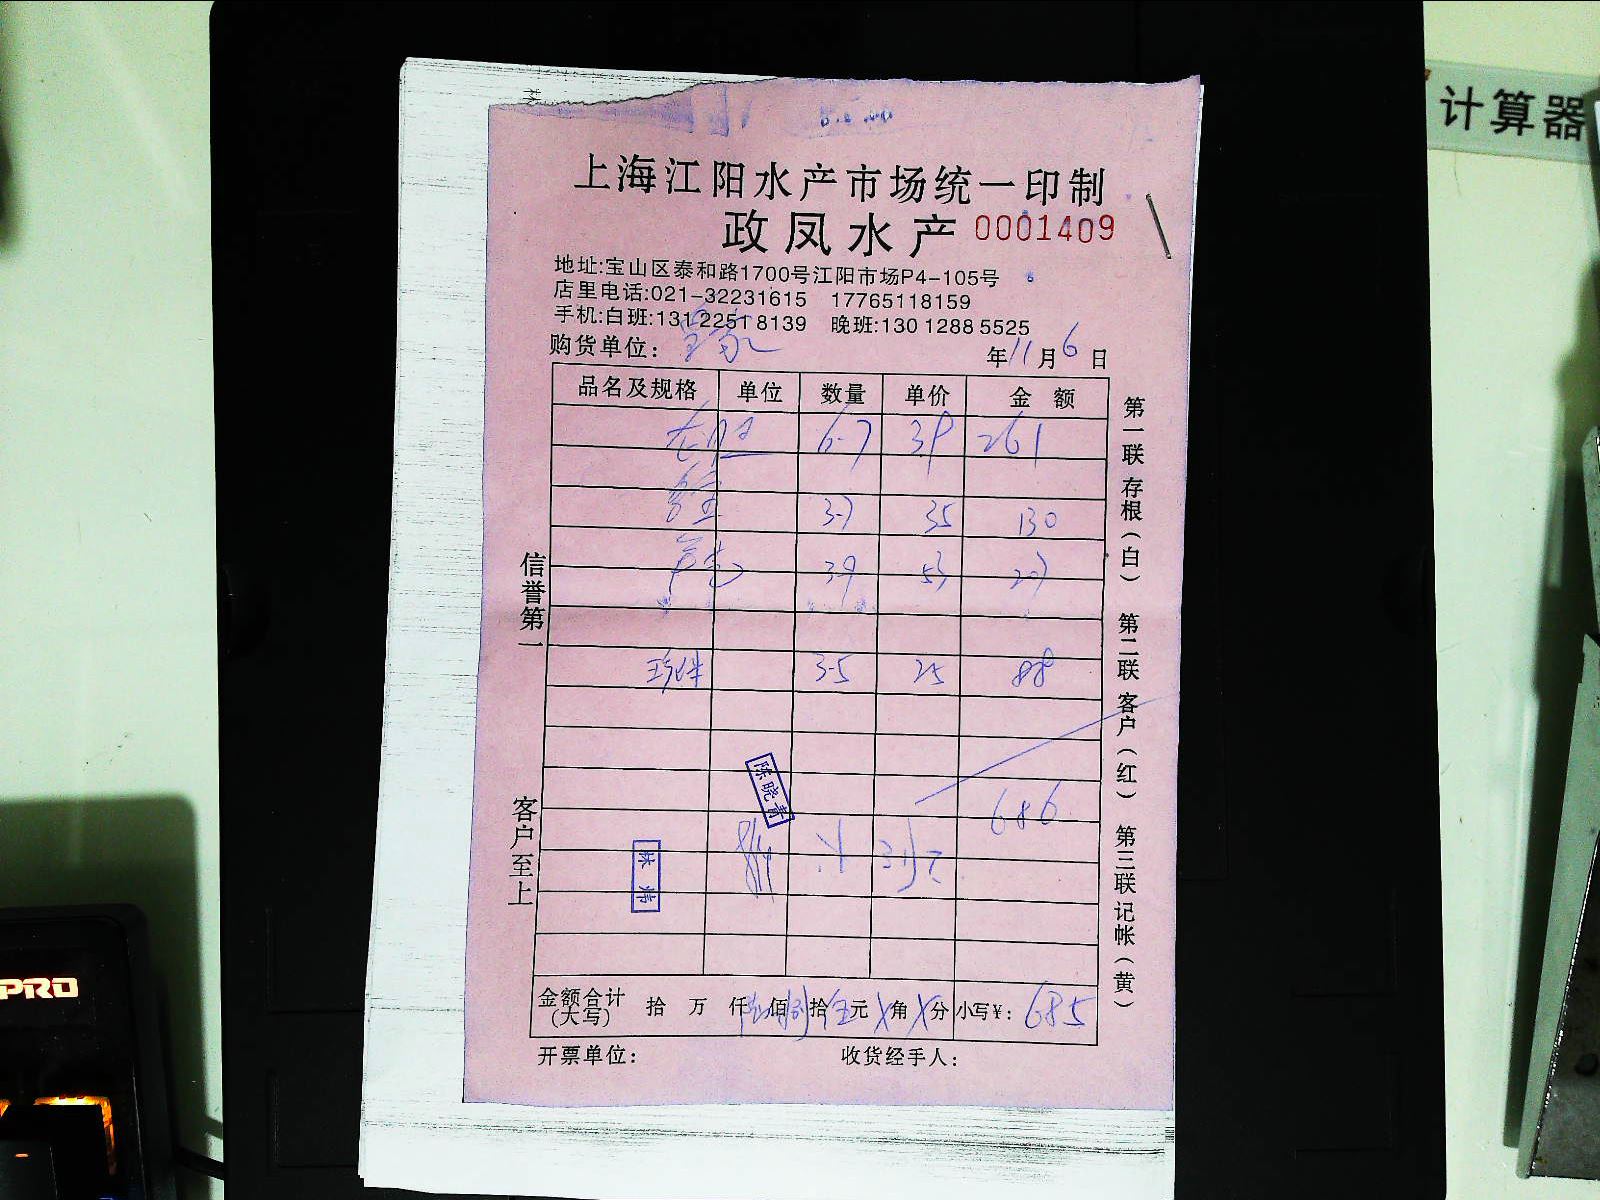 计算器
上海江阳水产市场统一印制
政凤水产 0001409
地址:宝山区泰和路1700号江阳市场P4-105号
店里电话:021-32231615 17765118159
手机:白班:131 2251 8139 晚班:130 1288 5525
购货单位: 年11月6日
品名及规格 单位 数量 单价 金额
6-7 39 261
3-7 35 130
3-9 53 2-7
珍珠 3-5 25 88
686
陈晓青
金额合计(大写) 拾 万 仟陆佰捌拾伍元X角X分 小写¥: 685
开票单位: 收货经手人:
信誉第一
客户至上
第一联存根(白) 第二联客户(红) 第三联记帐(黄)
PRO